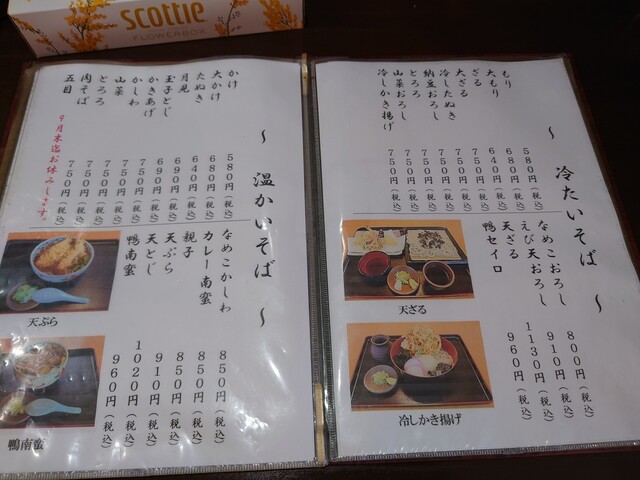 scottie
FLOWERBOX
〜 冷たいそば 〜
もり
大もり
ざる
大ざる
冷したぬき
納豆おろし
とろろ
山菜おろし
冷しかき揚げ
580円(税込)
680円(税込)
640円(税込)
750円(税込)
750円(税込)
750円(税込)
750円(税込)
750円(税込)
750円(税込)
なめこおろし
えび天おろし
天ざる
鴨セイロ
800円(税込)
910円(税込)
1130円(税込)
960円(税込)
天ざる
冷しかき揚げ
〜 温かいそば 〜
かけ
大かけ
たぬき
月見
玉子とじ
かきあげ
かしわ
山菜
とろろ
肉そば
五目
580円(税込)
680円(税込)
640円(税込)
690円(税込)
690円(税込)
750円(税込)
750円(税込)
750円(税込)
750円(税込)
750円(税込)
9月末迄お休みします。
なめこかしわ
カレー南蛮
親子
天ぷら
天とじ
鴨南蛮
850円(税込)
850円(税込)
850円(税込)
910円(税込)
1020円(税込)
960円(税込)
天ぷら
鴨南蛮